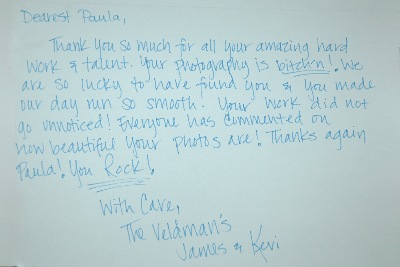 Dearest Paula,
Thank you so much for all your amazing hard
work & talent. Your photography is bitch'n! We
are so lucky to have found you & you made
our day run so smooth. Your work did not
go unnoticed! Everyone has commented on
how beautiful your photos are! Thanks again
Paula! You Rock!
With Care,
The Veldman's
James & Keri